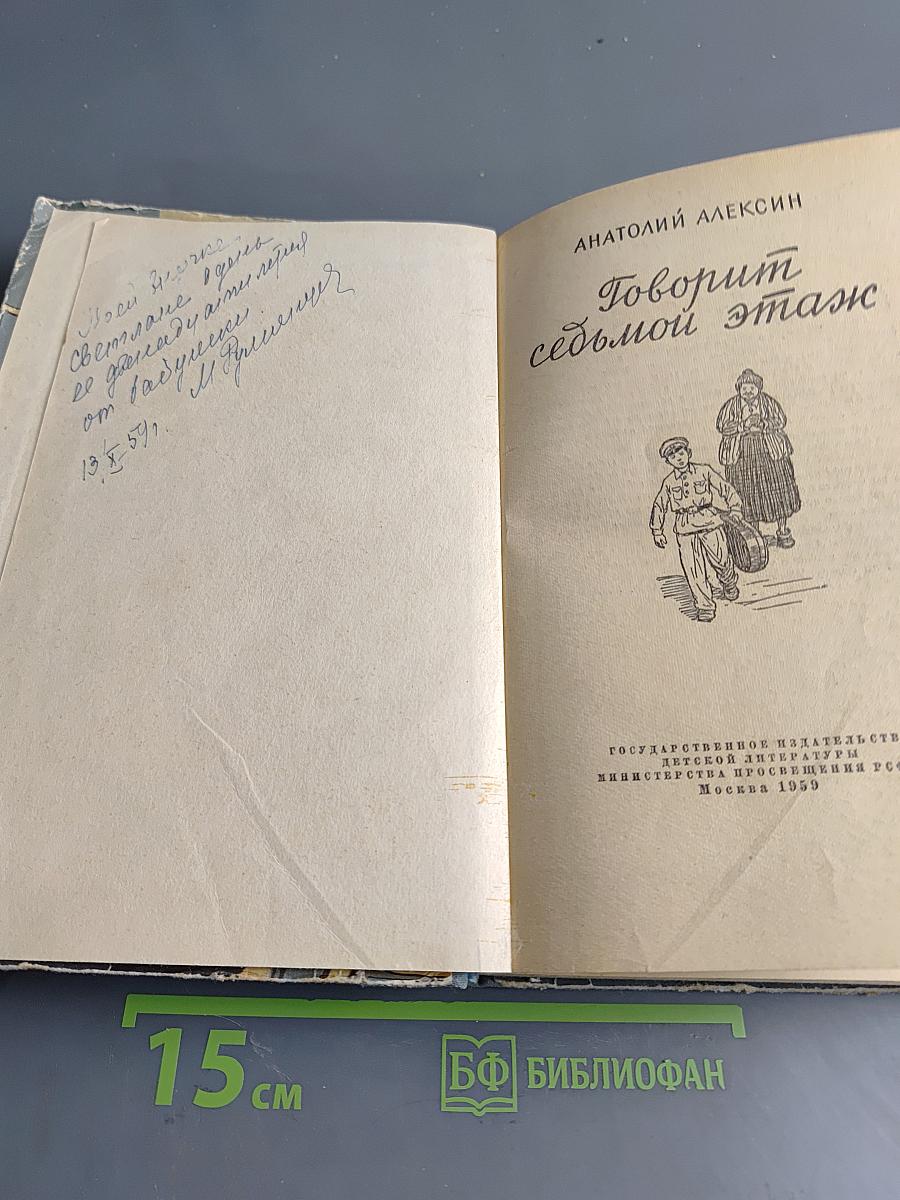 Моей
Светлане в день
ее двенадцатилетия
от бабушки.
М
13/X-59г.
АНАТОЛИЙ АЛЕКСИН
Говорит
седьмой этаж
ГОСУДАРСТВЕННОЕ ИЗДАТЕЛЬСТВ
ДЕТСКОЙ ЛИТЕРАТУРЫ
МИНИСТЕРСТВА ПРОСВЕЩЕНИЯ РСФ
Москва 1959
15 см
БФ БИБЛИОФАН